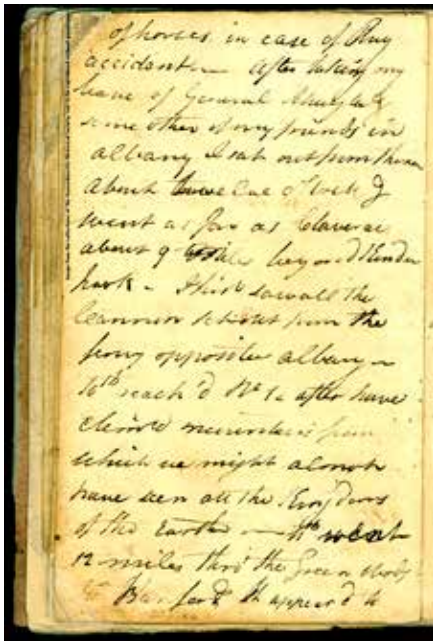 of horses in case of Any
accident — After taking my
leave of General Schuyler &
some other of my friends in
albany I sat out from thence
about twelve o'Clock &
went as far as Claverac
about 9 Miles beyond Kinder
hook – I first saw all the
Cannon set out from the
ferry opposite albany –
10th reach'd No 1. after have
climb'd mountains from
which we might almost
have seen all the Kingdoms
of the Earth — 11th went
12 miles thro' the Green Woods
to Blanford It appear'd to